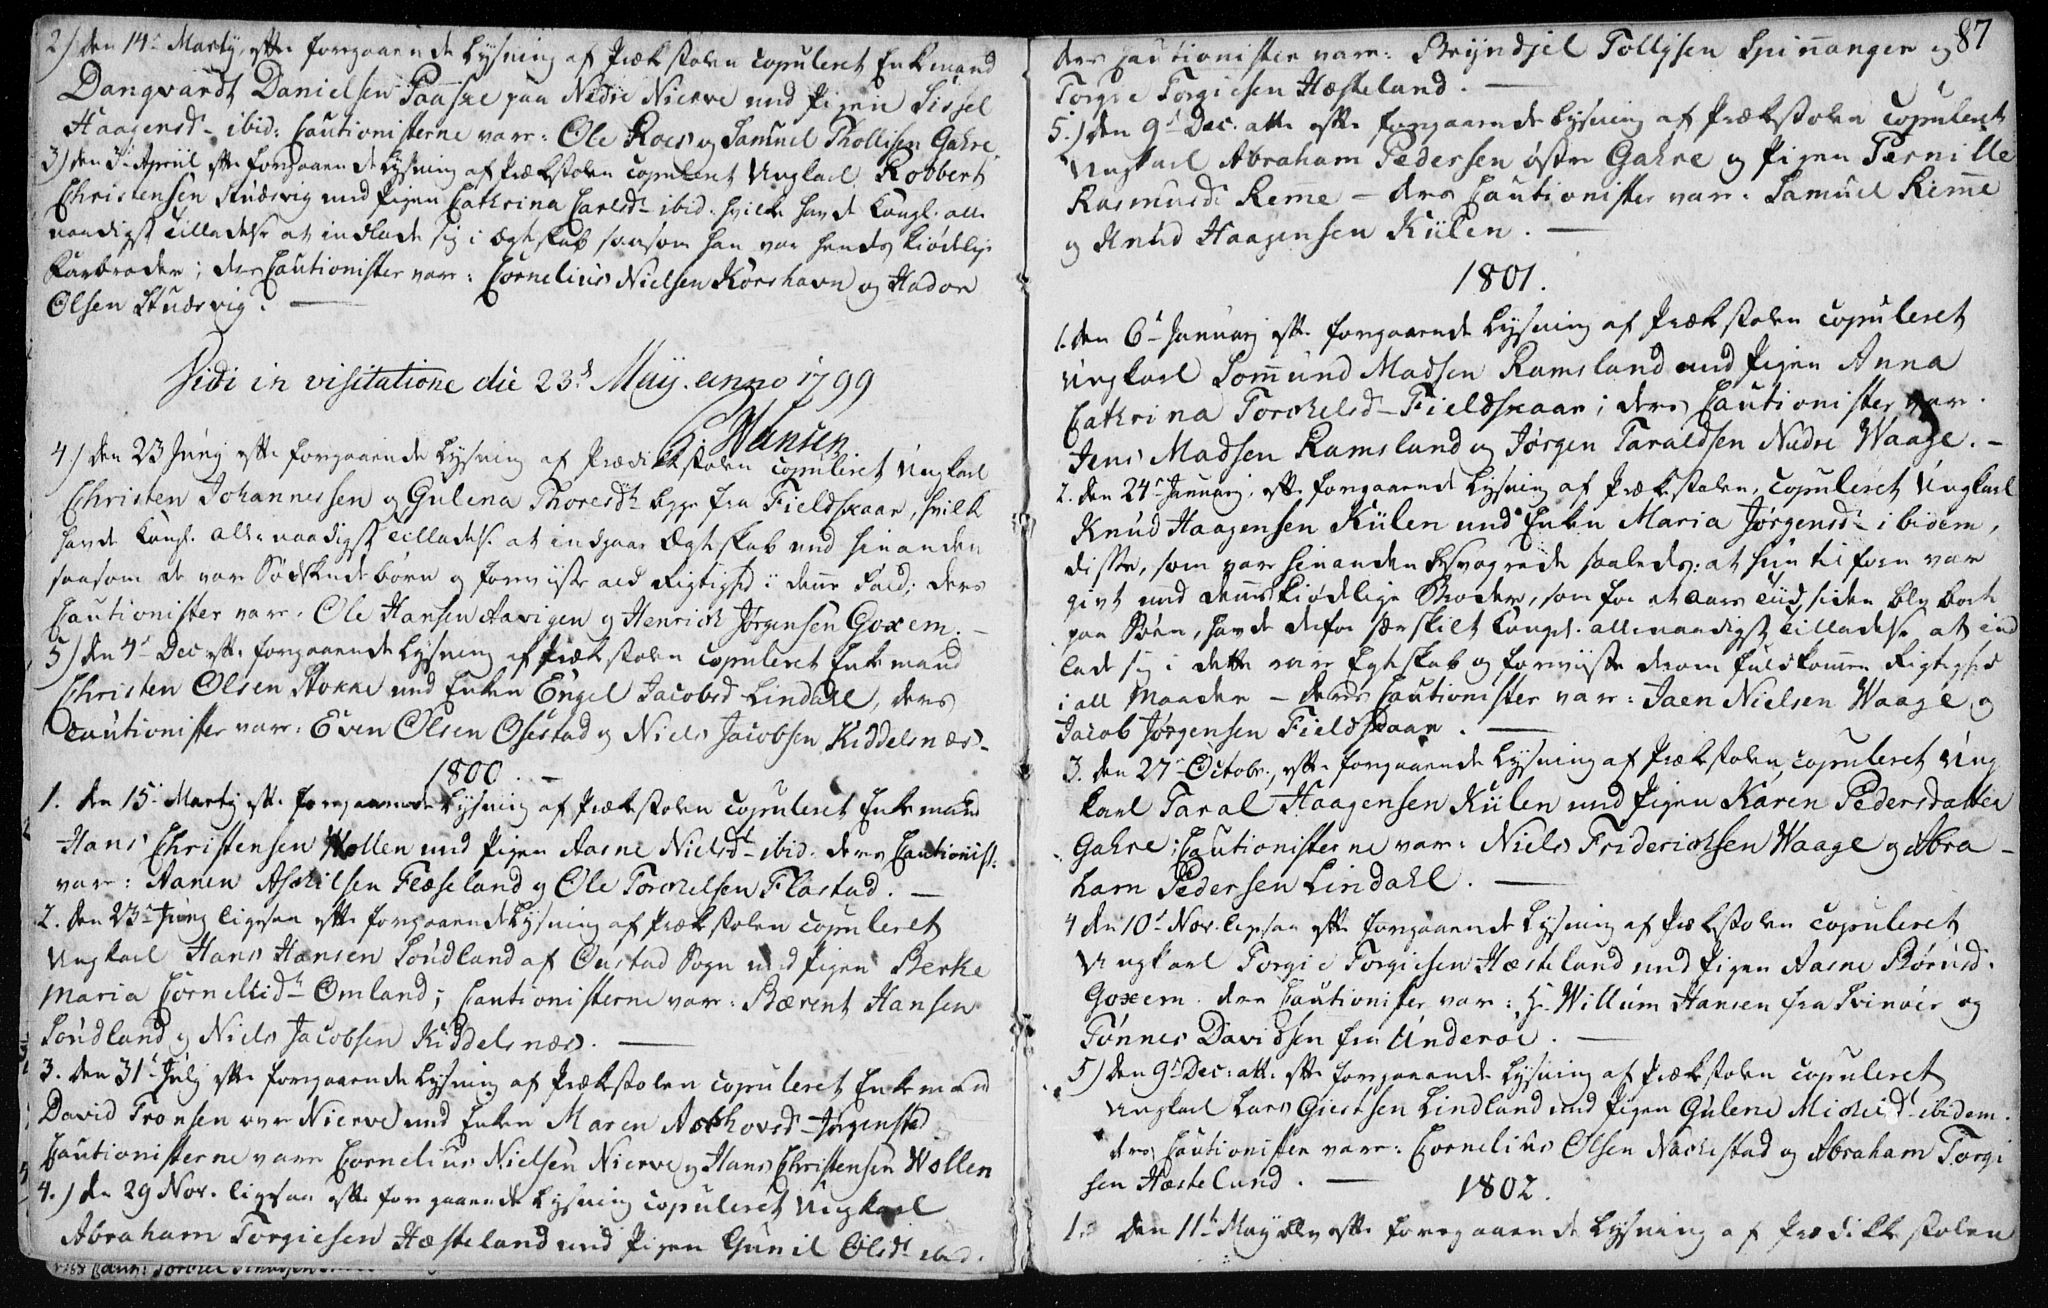 2) den 14de Martÿ, efter foregaaende Lysning af Prækestolen copuleret Enkemand
Dangvardt Danielsen Paaske paa Nedre Nierve med Pigen Sissel
Haagensd- ibid: Cautionisterne var: Ole Roes og Samuel Thollisen Gahre
3) den 3de Apriil efter foregaaende Lysning af Prækestolen copuleret Ungkarl Robbert
Christensen Stuesvig med Pigen Cathrina Carlsdt- ibid. hvilke havde Kongl. aller
naadigst Tilladelse at indlade sig i Ægteskab saasom han var hendes kiødelige
Farbroder; deres Cautionister var: Cornelius Nielsen Korshavn og Hador
Olsen Stuesvig.
Vidi in visitatione die 23d Maÿ. anno 1799
Hansen
4) den 23 Junÿ efter foregaaende Lysning af Prædikestolen copuleret Ungkarl
Christen Johannessen og Gulena Thoresdt begge fra Fieldskaar, hvilke
havde Kongl. allernaadigst Tilladelse at indgaae Ægteskab med hinanden
saasom de var Sødskendebørn og foreviiste al Rigtighed i denne Fald; deres
Cautionister var. Ole Hansen Aavigen og Henrich Jørgensen Goxem. -
5) den 4de Dec efter foregaaende Lysning af Prækestolen copuleret Enkemand
Christen Olsen Stokke med Enken Engel Jacobsd Lindahl, deres
Cautionister var: Even Olsen Osestad og Niels Jacobsen Kiddelsnæs-
1800. -
1. den 15de Martÿ efter foregaaende Lysning af Prækestolen copuleret Enkemand
Hans Christensen Wollen med Pigen Aasne Nielsdt- ibid. deres Cautionist:
var: Aanen Aschilsen Fleseland og Ole Torchelsen Flastad. -
2. den 23de Junÿ ligesaa efter foregaaende Lysning af Prækestolen copuleret
Ungkarl Hans Hansen Søndland af Oustad Sogn med Pigen Berthe
Maria Corneliidt- Omland; Cautionisterne var: Bærent Hansen
Søndland og Niels Jacobsen Kiddelsnæs.
3. den 31de Julÿ efter foregaaende Lysning af Prækestolen copuleret Enkemand
David Tronsen øvre Nierve med Enken Maren Jørgensted
Cautionisterne vare Cornelius Nielsen Nierve og Hans Christensen Wollen
4.) den 29 Nov. ligesaa efter foregaaende Lysning copuleret Ungkarl
Abraham Torgiesen Hæsteland med Pigen Gunil Olsdt ibid.
87
deres Cautionister vare: Brÿndjel Tollefsen Spinnanger og
Torgie Torgiesen Hæsteland. -
5.) den 9de Dec. efter foregaaende Lysning af Prækestolen copuleret
Ungkarl Abraham Pedersen østre Gahre og Pigen Pernille
Rasmusdt Reme - deres Cautionister var: Samuel Reme
og Knud Haagensen Kiilen. -
1801.
1. den 6te Januarj efter foregaaende Lysning af Prækestolen copuleret
Ungkarl Sommund Madsen Ramsland med Pigen Anna
Cathrina Torchelsd- Fieldskaar; deres Cautionister var.
Jens Madsen Ramsland og Jørgen Taraldsen Nedre Waage. -
2. den 24de Januarj, efter foregaaende Lysning af Prækestolen, copuleret Ungkarl
Knud Haagensen Kiilen med Enken Maria Jørgensd- ibidem,
disse, som var hinanden besvogrede saaledes: at hun tilforn var
givt med dennes kiødelige Broder, som for et aars Tiid siden blev borte
paa Søen, havde derfor særskilt Kongel. allernaadigst Tilladelse at ind
lade sig i dette Egteskab og foreviiste derom fuldkommen Rigtighed
i all Maader - deres Cautionister var: Jaen Nielsen Waage og
Jacob Jørgensen Fieldskaar. -
3. den 27de Octobr., efter foregaaende Lysning af Prækestolen, copuleret Ung
karl Taral Haagensen Kiilen med Pigen Karen Pedersdatter
Gahre; Cautionisterne var: Niels Friderichsen Waage og Abra-
ham Pedersen Lindahl. -
4 den 10de Nov. ligesaa efter foregaaende Lysning af Prækestolen copuleret
Ungkarl Torgie Torgiesen Hæsteland med Pigen Aasne Børusd.
Goxem. deres Cautionister var: Hr Willum Hansen fra Svinøer og
Tønnes Davidsen fra Underøe. -
5) den 9de Dec: efter foregaaende Lysning af Prækestolen copuleret
Ungkarl Lars Giertsen Lindland med Pigen Gulene ibidem.
deres Cautionister vare: Cornelius Olsen Nachestad og Abraham Torgi
sen Hæsteland. -
1802.
1. den 11te Maÿ blev efter foregaaende Lysning af Prædikkestolen